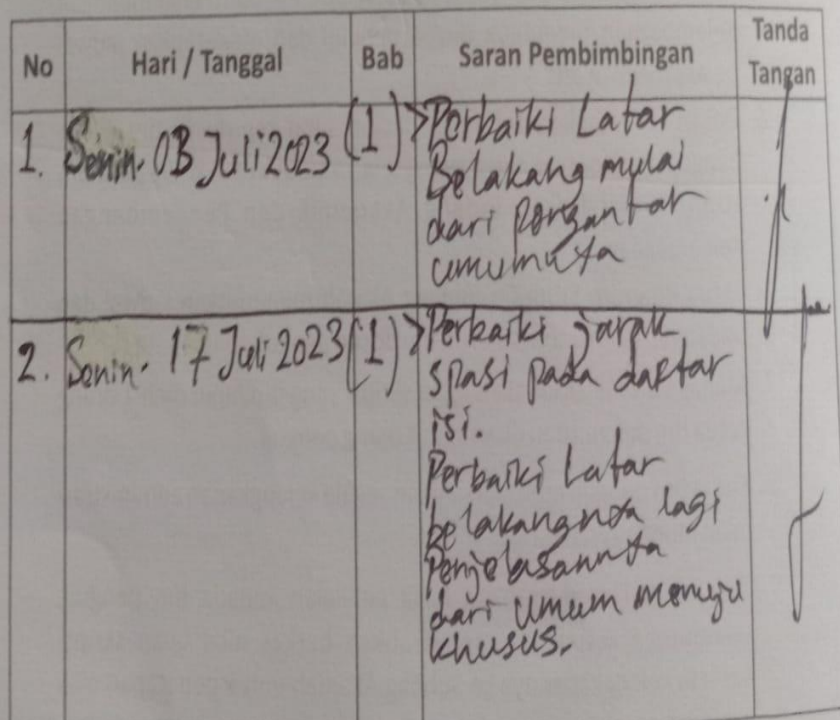 No Hari / Tanggal Bab Saran Pembimbingan Tanda Tangan
1. Senin. 03 Juli 2023 (1) >Perbaiki Latar
Belakang mulai
dari Pengantar
umumnya
2. Senin. 17 Juli 2023 (1) >Perbaiki jarak
spasi pada daftar
isi.
Perbaiki Latar
belakangnya lagi
Penjelasannya
dari umum menuju
khusus.